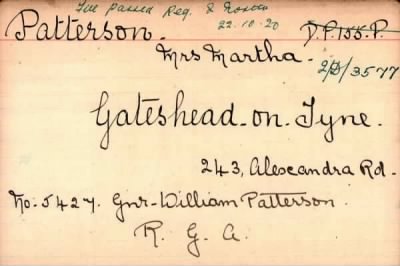 passed Reg.
22.10.20
Patterson.
D.P. 155.P.
Mrs Martha.
2/D/3577
Gateshead-on-Tyne.
243, Alexandra Rd.
No. 5427. Gnr. William Patterson.
R. G. A.